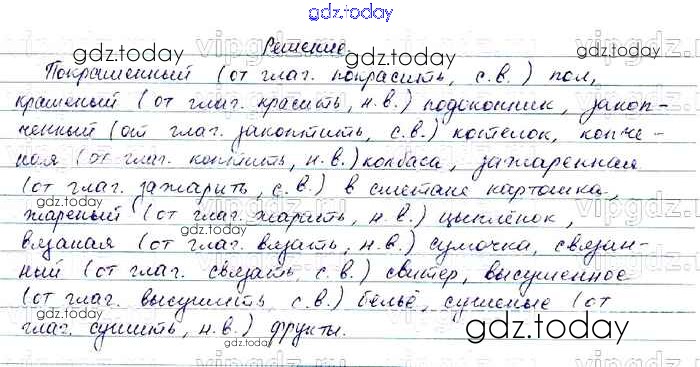 gdz.today
Решение.
Покрашенный (от глаг. покрасить, с.в.) пол,
крашеный (от глаг. красить, н.в.) подоконник, закоп-
ченный (от глаг. закоптить, с.в.) котелок, копче-
ная (от глаг. коптить, н.в.) колбаса, зажаренная
(от глаг. зажарить, с.в.) в сметане картошка,
жареный (от глаг. жарить, н.в.) цыплёнок,
вязаная (от глаг. вязать, н.в.) сумочка, связан-
ный (от глаг. связать, с.в.) свитер, высушенное
(от глаг. высушить, с.в.) бельё, сушеные (от
глаг. сушить, н.в.) фрукты.
gdz.today
gdz.today
gdz.today
gdz.today
gdz.today
gdz.today
gdz.today